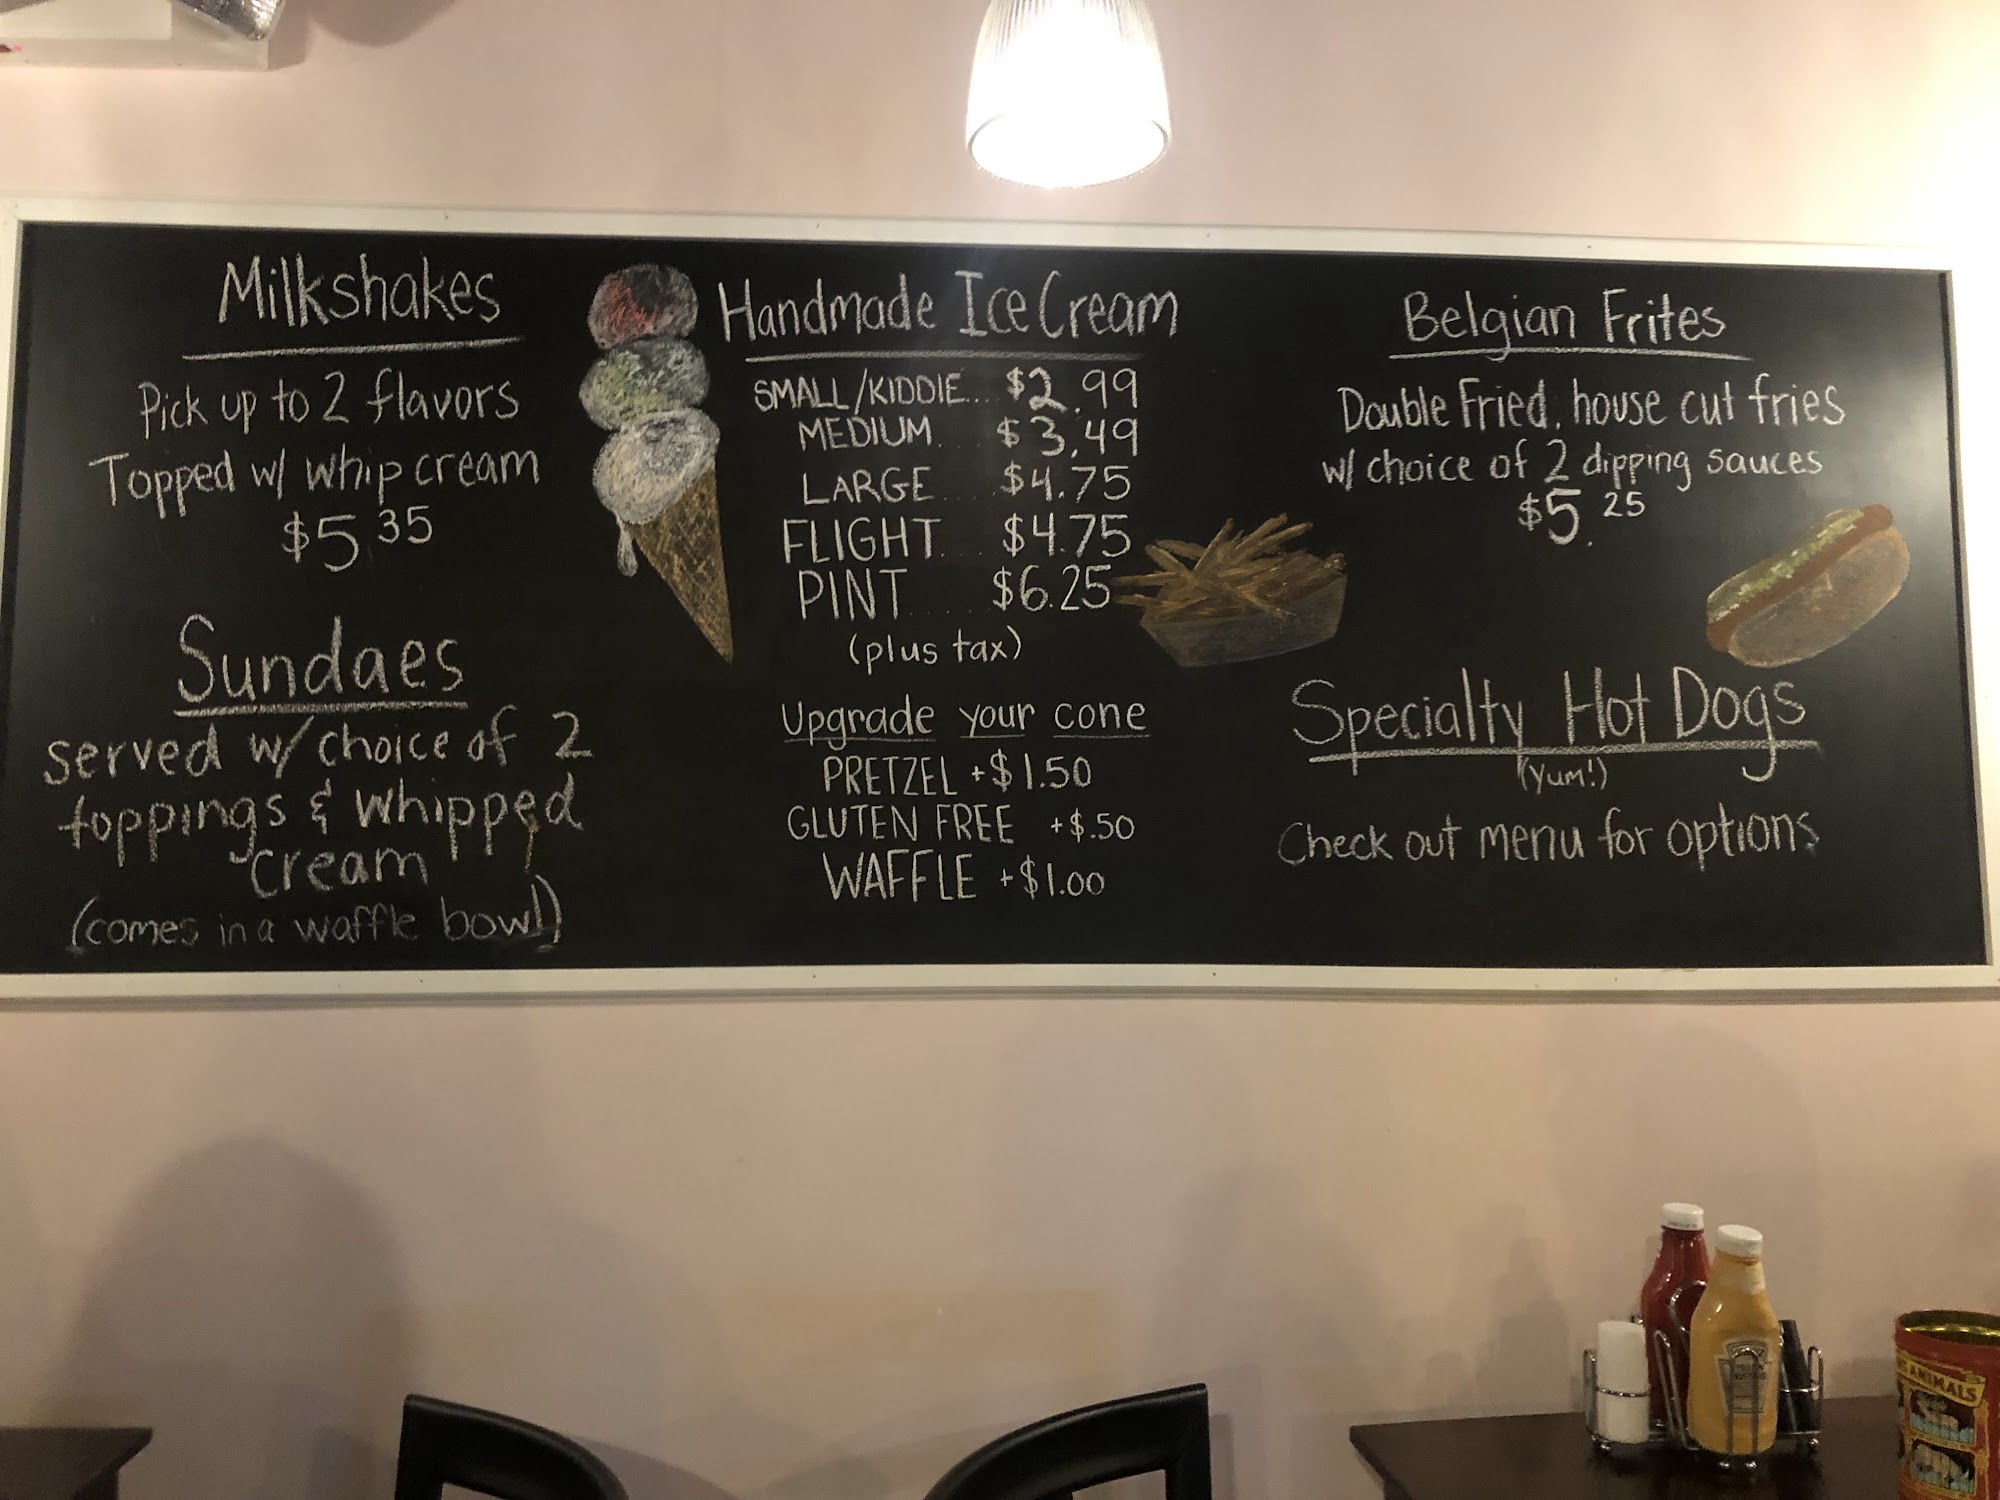 Milkshakes
Pick up to 2 flavors
Topped w/ whip cream
$5 35
Sundaes
served w/ choice of 2
toppings & whipped
cream
(comes in a waffle bowl)
Handmade Ice Cream
SMALL/KIDDIE... $2.99
MEDIUM.... $3.49
LARGE.... $4.75
FLIGHT.... $4.75
PINT..... $6.25
(plus tax)
Upgrade your cone
PRETZEL +$1.50
GLUTEN FREE +$.50
WAFFLE +$1.00
Belgian Frites
Double Fried, house cut fries
w/ choice of 2 dipping sauces
$5.25
Specialty Hot Dogs
(Yum!)
Check out menu for options
YELLOW
MUSTARD
ANIMALS